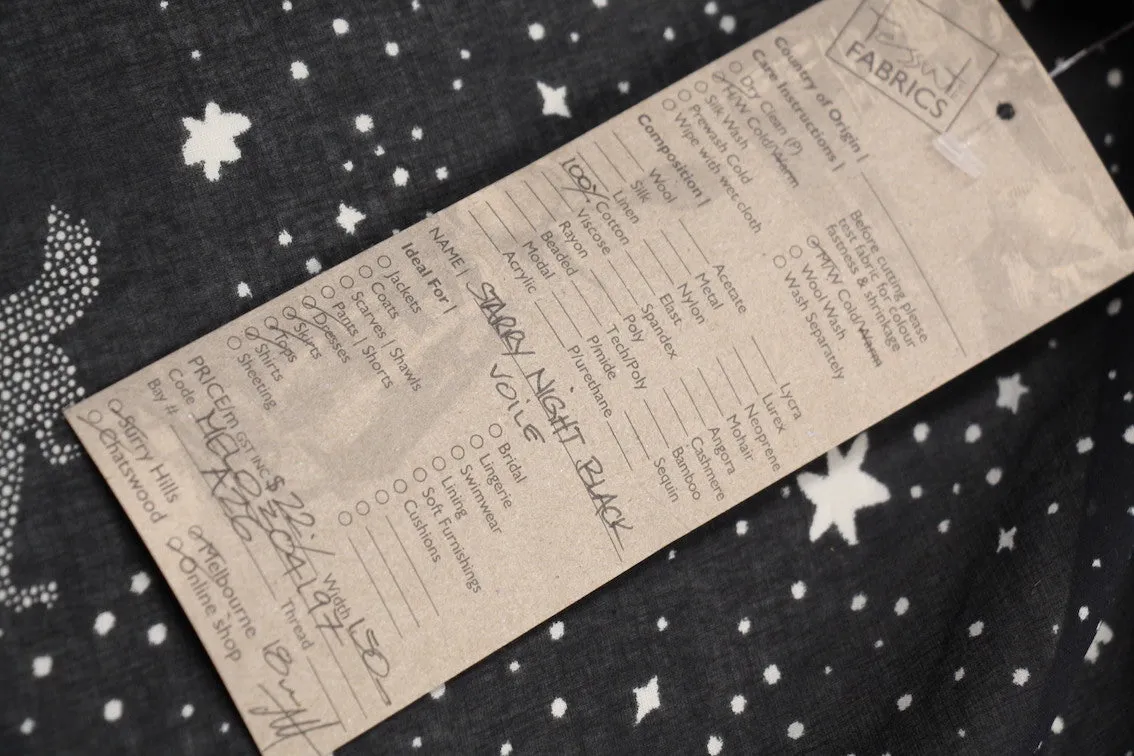 Tessuti
FABRICS
Country of Origin |
Care Instructions |
Dry Clean (P)
H/W Cold/Warm
Silk Wash
Prewash Cold
Wipe with wet cloth
Before cutting please
test fabric for colour
fastness & shrinkage
M/W Cold/Warm
Wool Wash
Wash Separately
Composition |
Wool
Silk
Linen
100% Cotton
Viscose
Rayon
Beaded
Modal
Acrylic
Acetate
Metal
Nylon
Elast
Spandex
Poly
Tech/Poly
P/mide
P/urethane
Lycra
Lurex
Neoprene
Mohair
Angora
Cashmere
Bamboo
Sequin
NAME | STARRY NIGHT BLACK
VOILE
Ideal For |
Jackets
Coats
Scarves | Shawls
Pants | Shorts
Dresses
Skirts
Tops
Shirts
Sheeting
Bridal
Lingerie
Swimwear
Lining
Soft Furnishings
Cushions
PRICE/m GST INC $ 22/ Width 150
Code
Bay # A26 Thread
Surry Hills
Chatswood
Melbourne
Online shop